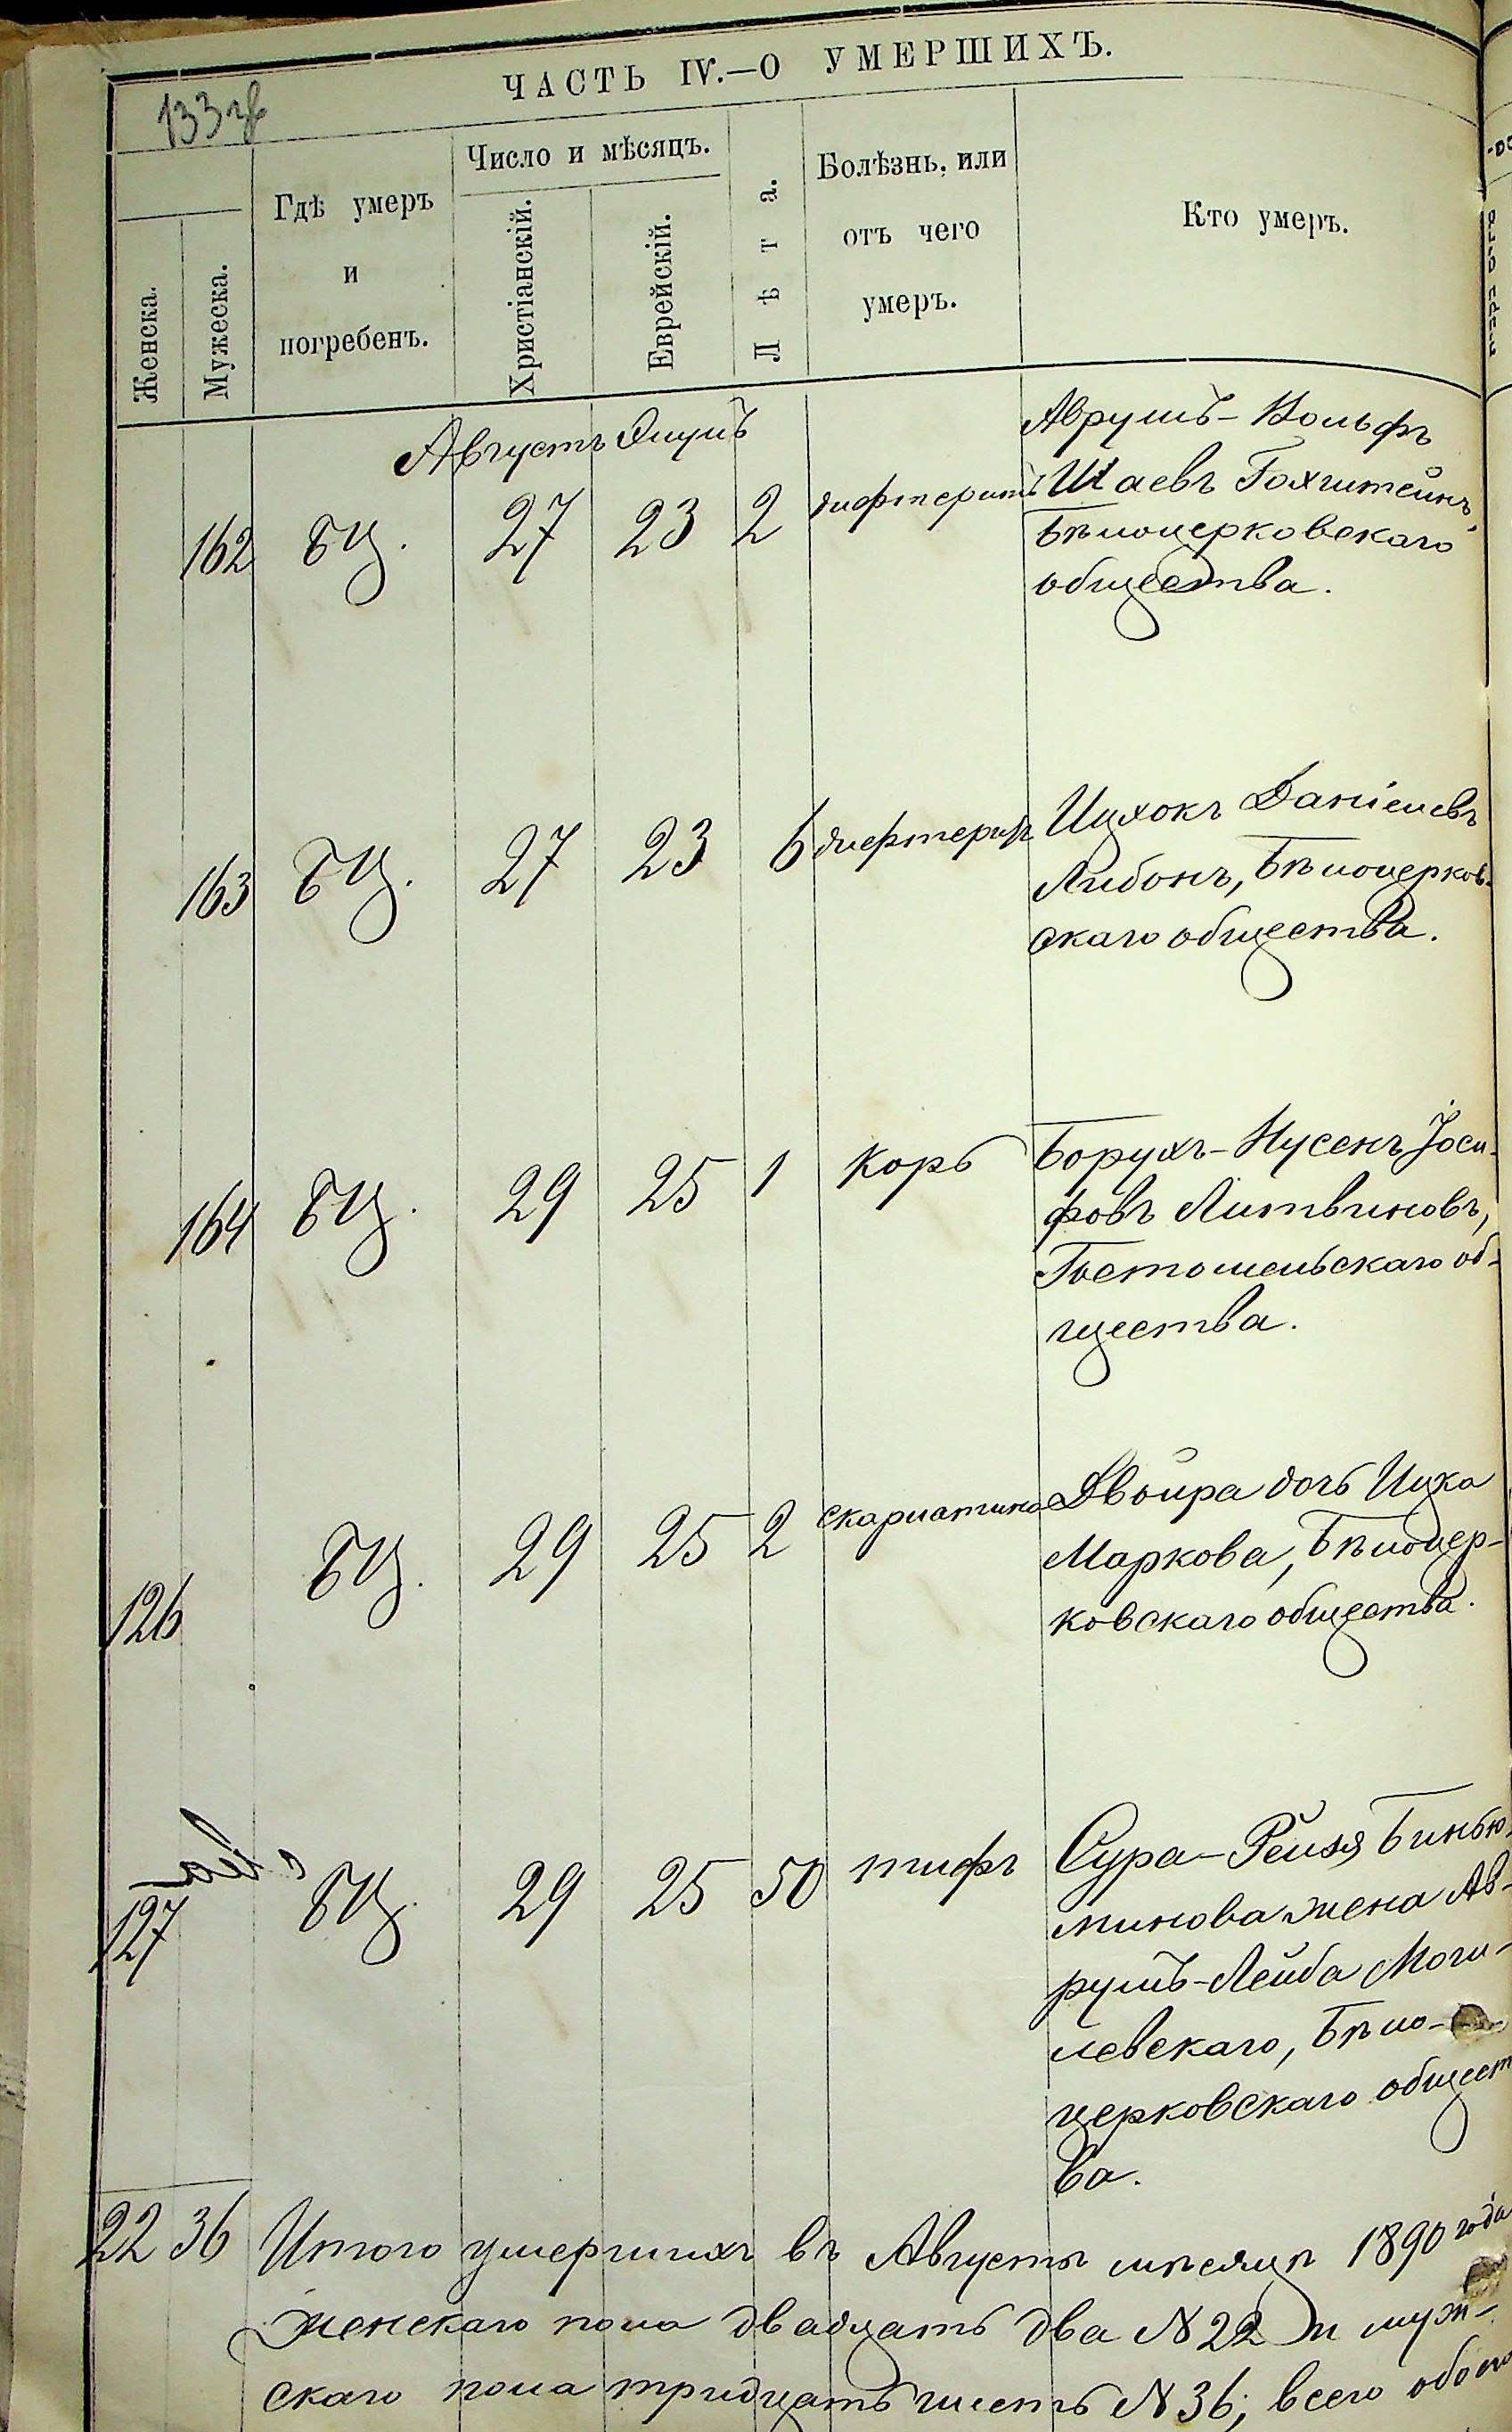 ЧАСТЬ IV.—О УМЕРШИХЪ.
Женска.
Мужеска.
Гдѣ умеръ
и
погребенъ.
Число и мѣсяцъ.
Христіанскій.
Еврейскій.
Лѣта.
Болѣзнь, или
отъ чего
умеръ.
Кто умеръ.
Августъ Элулъ
162 БЦ. 27 23 2 дифтеритъ
Аврумъ-Вольфъ
Шаевъ Гохштейнъ,
Бѣлоцерковскаго
общества.
163 БЦ. 27 23 6 дифтеритъ
Ицхокъ Даніелевъ
Либонъ, Бѣлоцерков-
скаго общества.
164 БЦ. 29 25 1 Корь
Борухъ-Нусенъ Іоси-
фовъ Литвиновъ,
Гостомельскаго об-
щества.
126 БЦ. 29 25 2 скарлатина
Двойра дочь Ицка
Маркова, Бѣлоцер-
ковскаго общества.
127 БЦ. 29 25 50 тифъ
Сура-Рейзя Бинью-
минова жена Ав-
румъ-Лейба Моги-
левскаго, Бѣло-
церковскаго общест
ва.
22 36 Итого умершихъ въ Августѣ мѣсяцѣ 1890 года
женскаго пола двадцать два N 22 и муж-
скаго пола тридцать шесть N 36; всего обоего